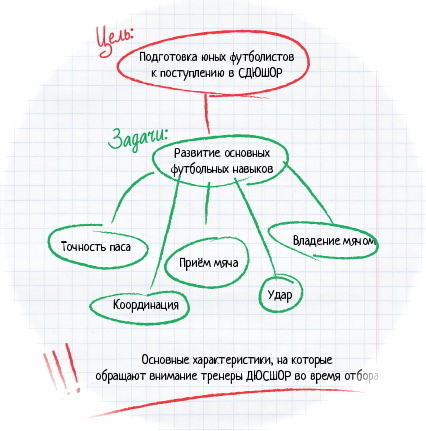 Цель:
Подготовка юных футболистов
к поступлению в СДЮШОР
Задачи:
Развитие основных
футбольных навыков
Точность паса
Координация
Приём мяча
Удар
Владение мячом
!!!
Основные характеристики, на которые
обращают внимание тренеры ДЮСШОР во время отбора